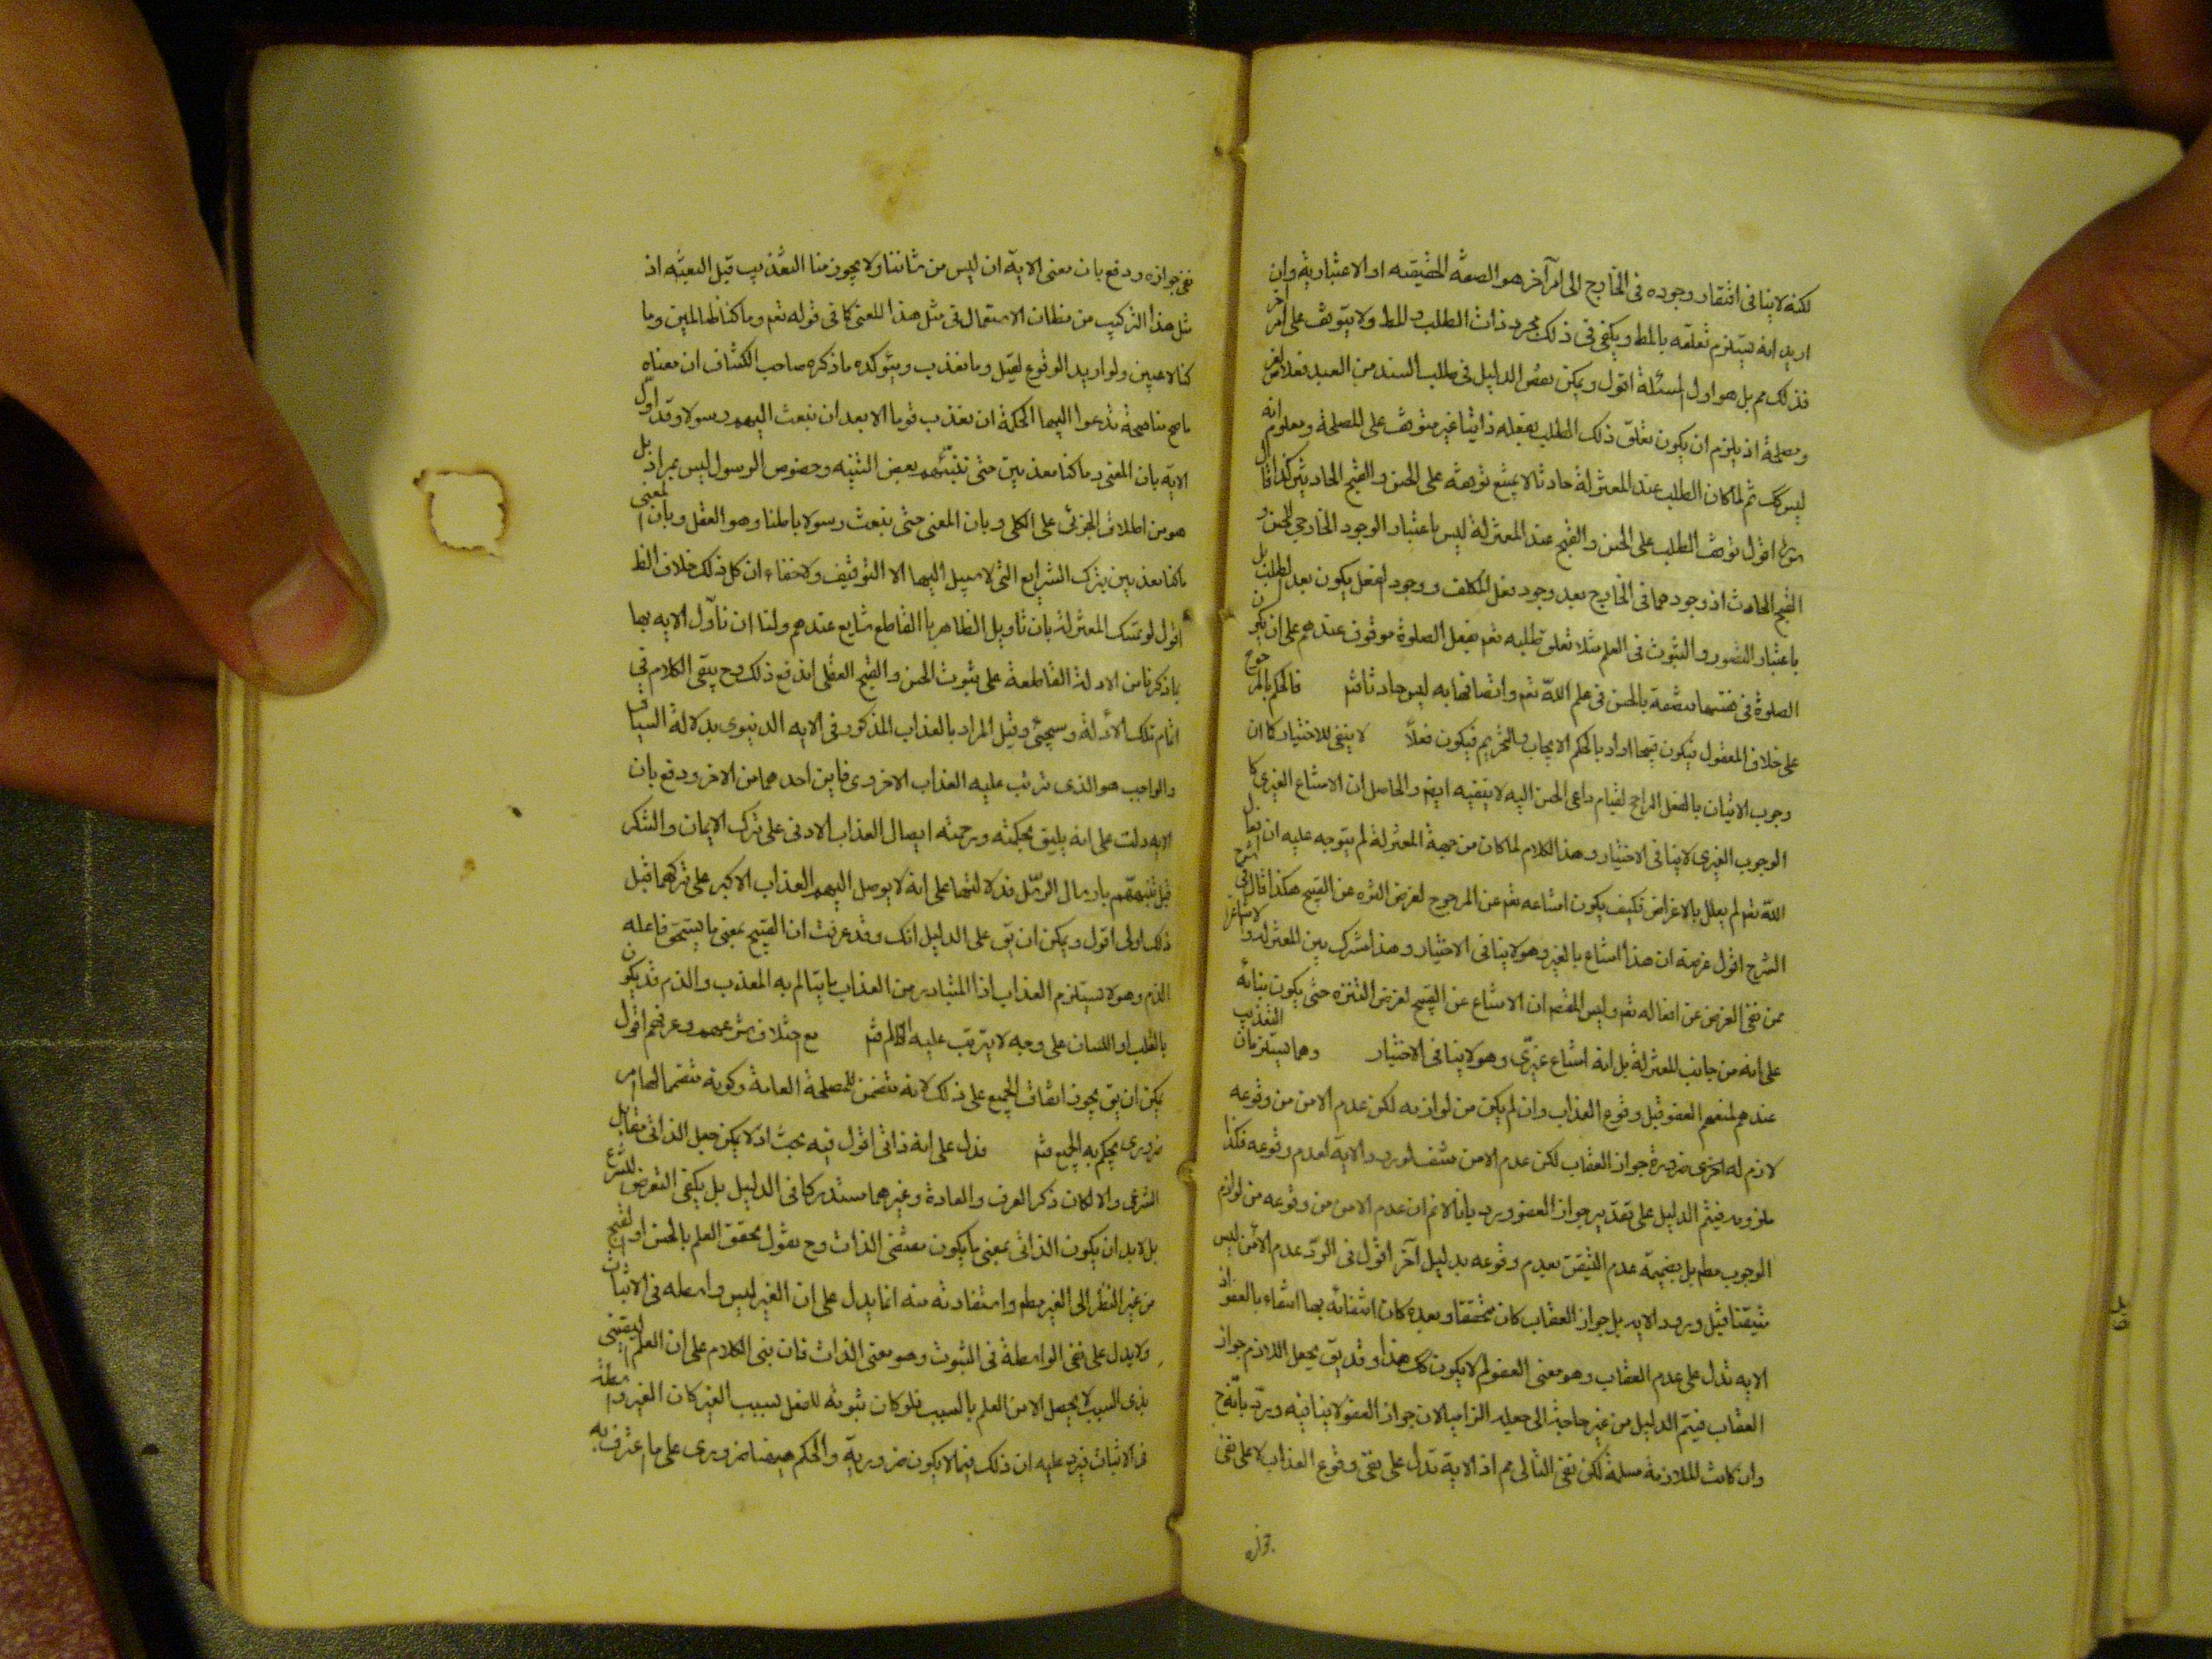 لكنه لاينافى افتقار وجوده فى الخارج الى امر آخر هو الصفة الحقيقية او الاعتبارية وان
اريد انه يستلزم تعلقه بالمط ويكفى فى ذلك مجرد ذات الطلب والمط ولا يتوقف على امر آخر
فذلك مم بل هو اول المسئلة اقول ويمكن بعض الدليل فى طلب السند من العبد فعلا لغرض
ومصلحة اذ يلزم ان يكون تعلق ذلك الطلب بفعله ذاتيا غير متوقف على المصلحة ومعلوم انه
ليس كك ثم لما كان الطلب عند المعتزلة حادثا لا يمتنع توقفه على الحسن والقبح الحادثين كذا قال
اقول توقف الطلب على الحسن والقبح عند المعتزلة ليس باعتبار الوجود الخارجى للحسن و
القبح الحادث اذ وجودهما فى الخارج بعد وجود فعل المكلف ووجود الفعل يكون بعد الطلب بل
باعتبار التصور والثبوت فى العلم مثلا تعلق طلبه تعم بفعل الصلوة موقوف عندهم على ان يكون
الصلوة فى نفسها متصفة بالحسن فى علم الله تعم واتصافها به ليس حادثا فتم فالحكم بالمرجوح
على خلاف المعقول فيكون قبيحا اراد بالحكم الايجاب والتحريم فيكون فعلا لا ينفى للاختيار كما ان
وجوب الاتيان بالفعل الراجح لقيام داعى الحسن اليه لا ينفيه ايضا والحاصل ان الامتناع الغيرى كا
الوجوب الغيرى لاينافى الاختيار وهذا الكلام لما كان من جهة المعتزلة لم يتوجه عليه ان فعل
الله تعم لم يعلل بالاغراض فكيف يكون امتناعه تعم عن المرجوح لغرض التنزه عن القبيح هكذا قال فى شرح
الشرح اقول غرضه ان هذا امتناع بالغير وهو لاينافى الاختيار وهذا مشترك بين المعتزلة والاشاعرة
ممن نفى الغرض عن افعاله تعم وليس المقصم ان الامتناع عن القبيح لغرض التنزه حتى يكون بنائه
على انه من جانب المعتزلة بل انه امتناع غيرى وهو لاينافى الاختيار وهما يستلزمان التعذيب
عندهم لمنعهم العفو قبل وقوع العذاب وان لم يكن من لوازمه لكن عدم الامن من وقوعه
لازم له اخرى ضرورة جواز العقاب لكن عدم الامن منتف لورود الاية لعدم وقوعه فكذا
ملزومه فيتم الدليل على تقدير جواز العفو ورد بانا لانم ان عدم الامن من وقوعه من لوازم
الوجوب مطم بل بضميمة عدم التيقن بعدم وقوعه بدليل آخر اقول فى الرد عدم الامن ليس
متيقنا قبل ورود الايه بل جواز العقاب كان متحققا وبعده كان انتفائه بها انتفاء بالعفو اذ
الايه تدل على عدم العقاب وهو معنى العفو لم لا يكون كك هذا وقد يق بجعل اللازم جواز
العقاب فيتم الدليل من غير حاجة الى جعله الزاميا لان جواز العفو لاينافيه ورد بانه ح
وان كانت الملازمة مسلمة لكن نفى التالى مم اذ الاية تدل على نفى وقوع العذاب لا على نفى
جوازه
نفى جوازه ودفع بان معنى الاية ان ليس من شاننا ولا يجوز منا التعذيب قبل البعثه اذ
مثل هذا التركيب من مظان الاستعمال فى مثل هذا المعنى كما فى قوله تعم وما كنا ظالمين وما
كنا لاعبين ولو اريد الوقوع لقيل وما نعذب ويؤكده ما ذكره صاحب الكشاف ان معناه
ما صح منا صحة تدعوا اليها الحكمة ان نعذب قوما الا بعد ان نبعث اليهم رسولا وقد اول
الايه بان المعنى وما كنا معذبين حتى ننبئهم بعض التنبيه وخصوص الرسول ليس بمراد بل
هو من اطلاق الجزئى على الكلى وبان المعنى حتى نبعث رسولا باطنا وهو العقل وبان المعنى
ما كنا معذبين بترك الشرايع التى لا سبيل اليها الا التوقيف ولا خفاء ان كل ذلك خلاف الظ
اقول لو تمسك المعتزلة بان تأويل الظاهر بالقاطع شايع عندهم ولنا ان نأول الايه بها
بما ذكرنا من الادلة القاطعة على ثبوت الحسن والقبح العقلى اندفع ذلك وح يبقى الكلام فى
اتمام تلك الادلة وسيجئ وقيل المراد بالعذاب المذكور فى الايه الدنيوى بدلالة السياق
والواجب هو الذى ترتب عليه العذاب الاخروى فاين احدهما من الاخر ودفع بان
الايه دلت على انه يليق بحكمته ورحمته ايصال العذاب الادنى على ترك الايمان والشكر
قبل تنبيههم بارسال الرسل فدلالتها على انه لا يوصل اليهم العذاب الاكبر على تركهما قبل
ذلك اولى اقول ويمكن ان يق على الدليل انك وقد عرفت ان القبيح بمعنى ما يستحق فاعله
الذم وهو لا يستلزم العذاب اذا المتبادر من العذاب ما يتالم به المعذب والذم قد يكون
بالقلب او اللسان على وجه لا يترتب عليه الالم فتم مع اختلاف شرعهم وعرفهم اقول
يمكن ان يق يجوز اتفاق الجميع على ذلك لانه متضمن للمصلحة العامة وكونه متضمنا لها امر
ضرورى يحكم به الجميع فتم فدل على انه ذاتى اقول فيه بحث اذ لا يمكن جعل الذاتى مقابل
الشرعى والا لكان ذكر العرف والعادة وغيرهما مستدركا فى الدليل بل يكفى التعرض للشرع
بل لابد ان يكون الذاتى بمعنى ما يكون مقتضى الذات وح نقول تحقق العلم بالحسن او القبح
من غير النظر الى الغير مطم واستفادته منه انما يدل على ان الغير ليس واسطه فى الاثبات
ولا يدل على نفى الواسطة فى الثبوت وهو معنى الذات فان بنى الكلام على ان العلم اليقينى
بذى السبب لا يحصل الا من العلم بالسبب فلو كان ثبوته للفعل بسبب الغير كان الغير واسطة
فى الاثبات فيرد عليه ان ذلك فيما لا يكون ضرورية والحكم ههنا ضرورى على ما اعترف به